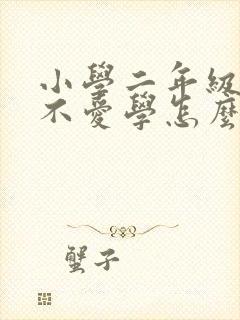 小學二年級
不愛學怎麼
蟹子